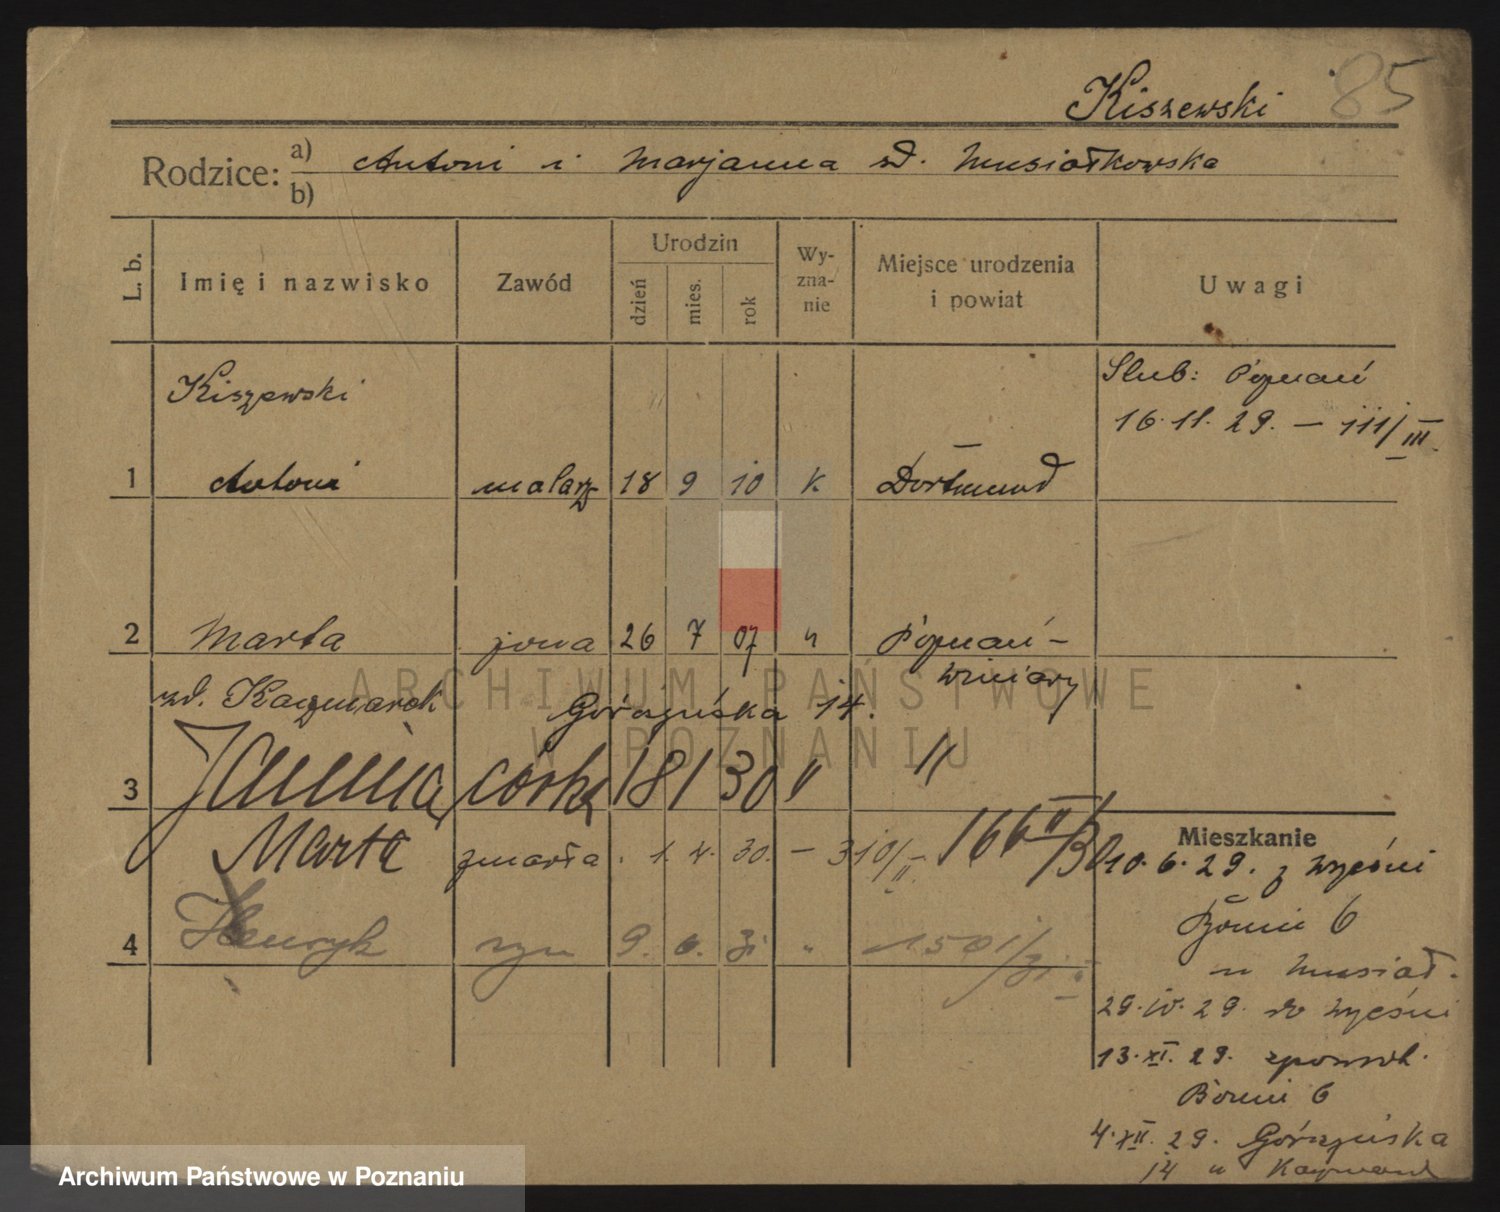 Kiszewski 85
Rodzice: a) Antoni i Marjanna zd. Musiałkowska
b)
L. b. Imię i nazwisko Zawód Urodzin dzień mies. rok Wy-zna-nie Miejsce urodzenia i powiat Uwagi
Kiszewski Slub: Poznań
16.11.29. – 111/III.
1 Antoni malarz 18 9 10 k Dortmund
2 Marta żona 26 7 07 " Poznań –
Winiary
zd. Kaczmarek Góczyńska 14.
3 Janina córka 18 1 30 " "
Marta zmarła . 1. 4. 30. – 310/II. 166 II/30
Mieszkanie
10.6.29. z Wrześni
4 Henryk syn 9. 6. 31 " 1501/31
Bonin 6
u Musiał.
29.IV.29. do Wrześni
13.XI.29. zpowrot.
Bonin 6
4.XII.29. Góczyńska
14 u Kaczmarek
ARCHIWUM PAŃSTWOWE
W POZNANIU
Archiwum Państwowe w Poznaniu